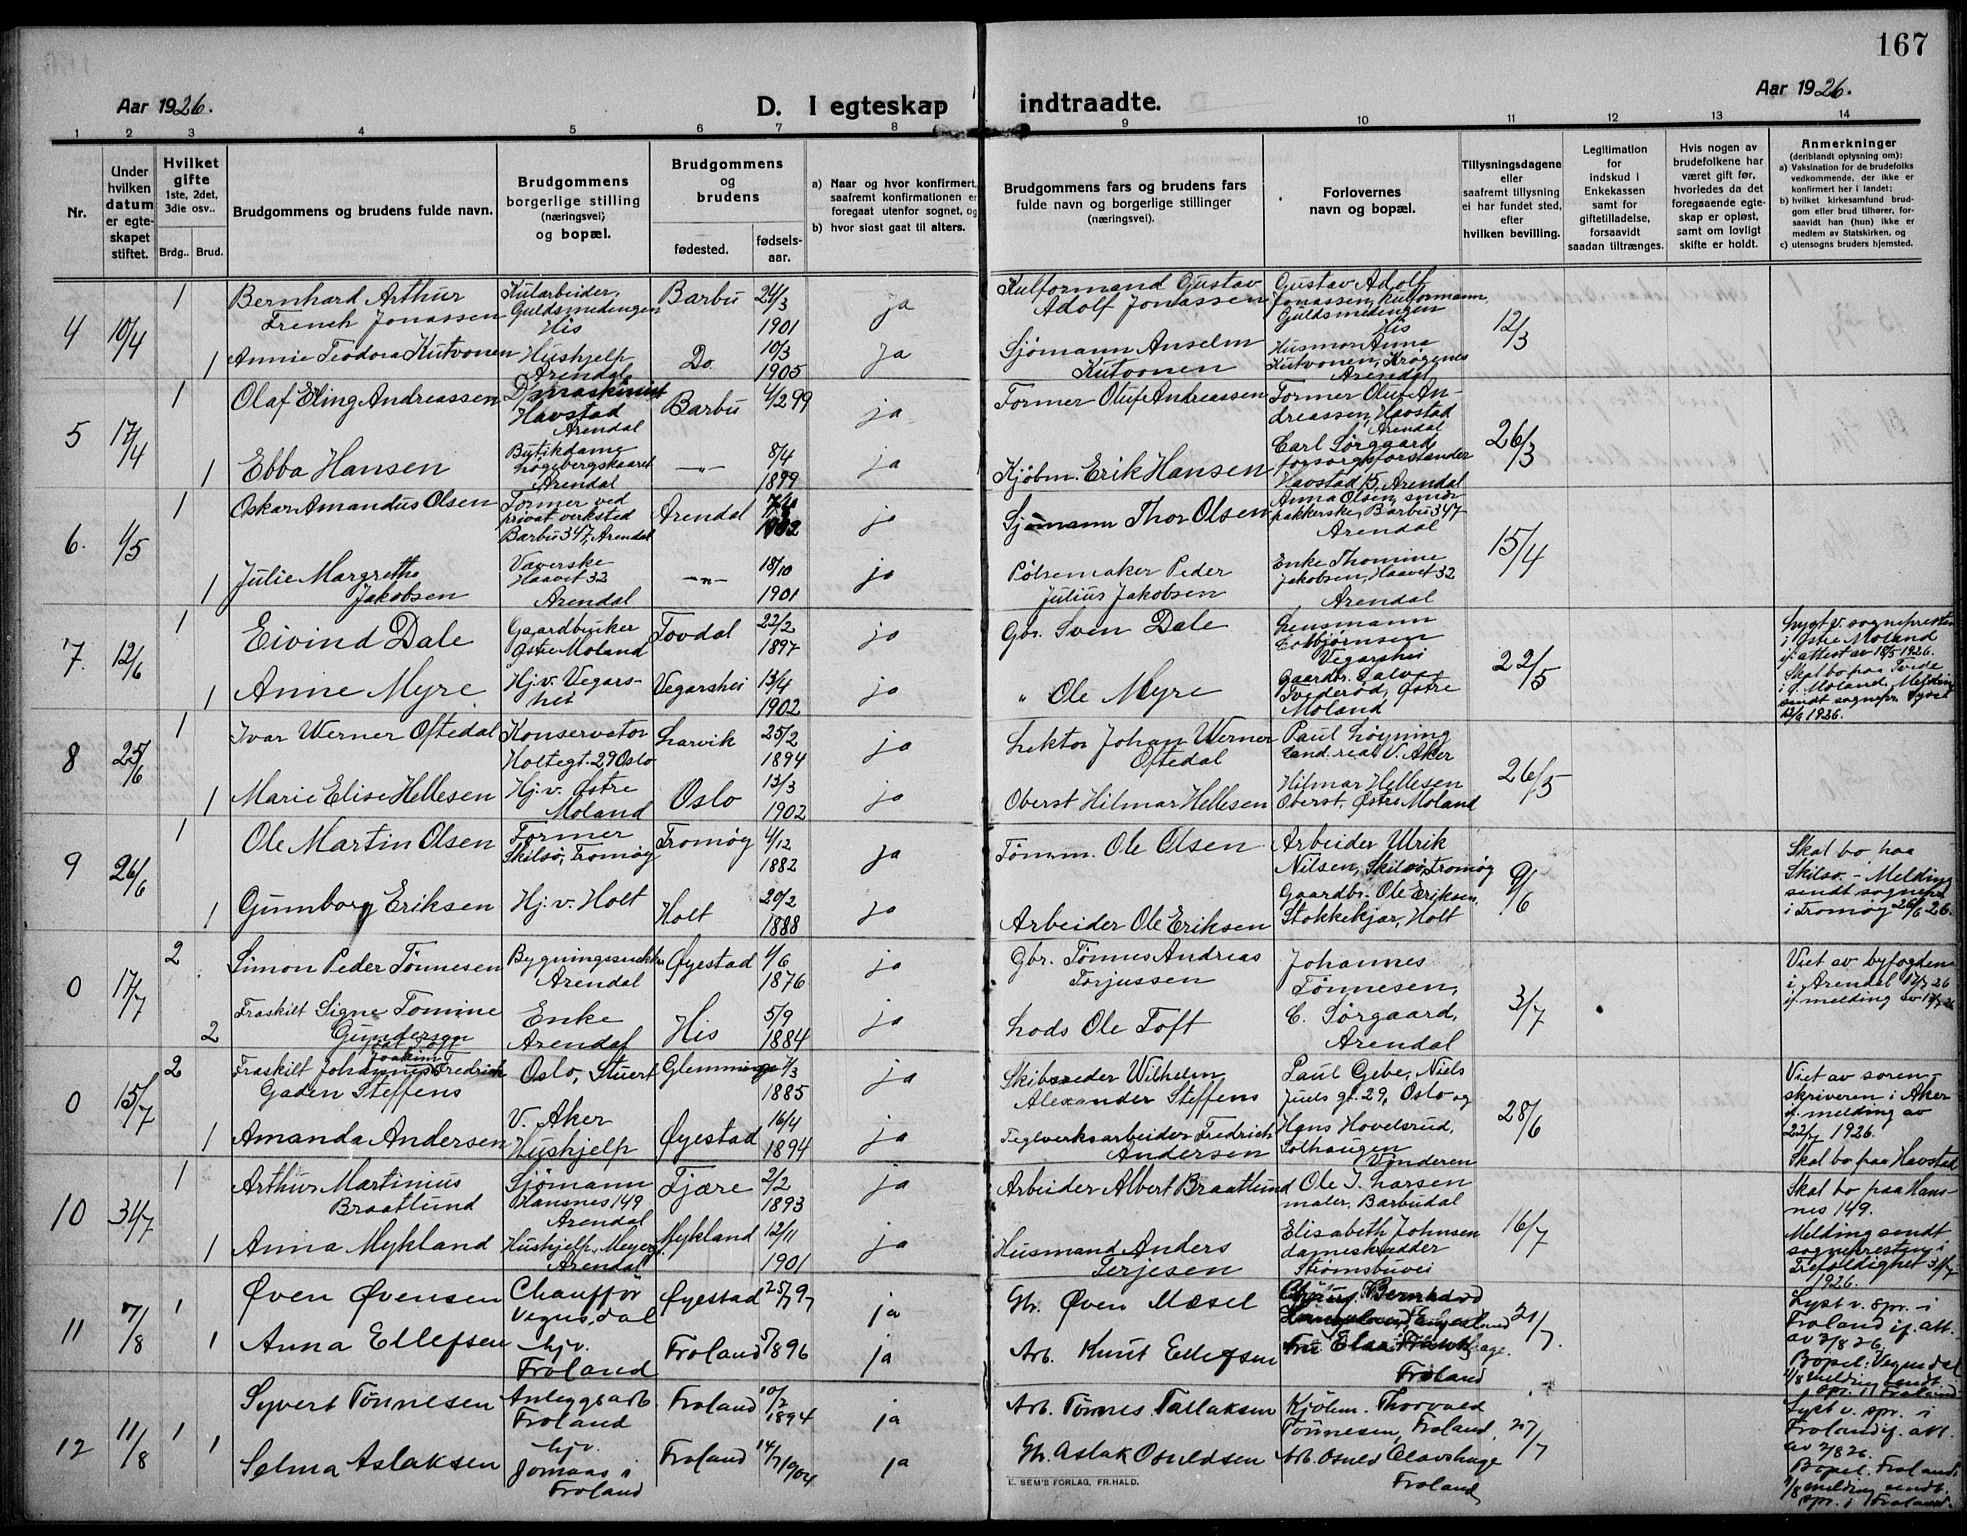 167
Aar 1926.
D. I egteskap indtraadte.
Aar 1926.
1 2 3 4 5 6 7 8 9 10 11 12 13 14
Nr.
Under hvilken datum er egteskapet stiftet.
Hvilket gifte
1ste, 2det, 3die osv..
Brdg.. Brud.
Brudgommens og brudens fulde navn.
Brudgommens
borgerlige stilling
(næringsvei)
og bopæl.
Brudgommens
og
brudens
fødested.
fødselsaar.
a) Naar og hvor konfirmert,
saafremt konfirmationen er
foregaat utenfor sognet, og
b) hvor sidst gaat til alters.
Brudgommens fars og brudens fars
fulde navn og borgerlige stillinger
(næringsvei).
Forlovernes
navn og bopæl.
Tillysningsdagene
eller
saafremt tillysning
ei har fundet sted,
efter
hvilken bevilling.
Legitimation
for
indskud i
Enkekassen
samt for
giftetilladelse,
forsaavidt
saadan tiltrænges.
Hvis nogen av
brudefolkene har
været gift før,
hvorledes da det
foregaaende egteskap er opløst,
samt om lovligt
skifte er holdt.
Anmerkninger
(deriblandt oplysning om):
a) Vaksination for de brudefolks
vedkommende, der ikke er
konfirmert her i landet;
b) hvilket kirkesamfund brudgom eller brud tilhører, forsaavidt han (hun) ikke er
medlem av Statskirken, og
c) utensogns bruders hjemsted.
4 10/4 1 Bernhard Arthur
French Jonassen
Kularbeider,
Guldsmedengen
His
Barbu 24/3
1901
ja
Kulformand Gustav
Adolf Jonassen
Gustav Adolf
Jonassen, Kulformann,
Guldsmedengen
His
12/3
1 Annie Teodora Kutvonen
Hushjelp
Arendal
Do. 10/3
1905
ja
Sjømann Anselm
Kutvonen
Husmor Anna
Kutvonen, Krøgenes
Arendal
5 17/4 1 Olaf Erling Andreassen
Havstad
Arendal
Barbu 4/2 99
ja
Former Oluf Andreassen
Former Oluf Andreassen, Havstad
Arendal
26/3
1 Ebba Hansen
Butikdame
Arendal
—"— 8/4
1899
ja
Kjøbm. Erik Hansen
Carl Sørgaard
forsorgsforstander
Havstad 15, Arendal
6. 1/5 1 Oskar Amandus Olsen
Former ved
privat verksted
Barbu 347, Arendal
Arendal
1902
ja
Sjømann Thor Olsen
Anna Olsen, smørpakkerske, Barbu 347
Arendal
15/4
1 Julie Margrethe
Jakobsen
Væverske
Haavet 32
Arendal
—"— 18/10
1901
ja
Pølsemaker Peder
Julius Jakobsen
Enke Thomine
Jakobsen, Haavet 32
Arendal
7. 12/6 1 Eivind Dale
Gaardbruker
Østre Moland
Tovdal 22/2
1897
ja
Gbr. Sven Dale
Lensmann
Vegarshei
22/5
Lyst v. sognepresten
i Østre Moland
if. attest av 18/5 1926.
1 Anne Myre
Hj. v. Vegarshei
Vegarshei 13/4
1902
ja
" Ole Myre
Gaardbr. Salve
Tvederød, Østre
Moland
Skal bo paa Tvede
i Ø. Moland. Melding
sendt sognepr. Tvedt
12/6 1926.
8 25/6 1 Ivar Werner Oftedal
Konservator
Holtegt. 29 Oslo
Larvik 25/2
1894
ja
Lektor Johan Werner
Oftedal
Paul Løyning
Cand. real. V. Aker
26/5
1 Marie Elise Hellesen
Hj. v. Østre
Moland
Oslo 13/3
1902
ja
Oberst Hilmar Hellesen
Hilmar Hellesen
Oberst, Østre Moland
9 26/6 1 Ole Martin Olsen
Former
Skilsø, Tromøy
Tromøy 4/12
1882
ja
Tømm. Ole Olsen
Arbeider Ulrik
Nilsen, Skilsø, Tromøy
9/6
Skal bo paa
Skilsø. - Melding
sendt sognepr.
i Tromøy 26/6 26.
1 Gunnborg Eriksen
Hj. v. Holt
Holt 20/2
1888
ja
Arbeider Ole Eriksen
Gaardbr. Ole Eriksen,
Stokkekjær, Holt
0 17/7 2 Simon Peder Tønnesen
Bygningssnekker
Arendal
Øyestad 1/6
1876
ja
Gbr. Tønnes Andreas
Torjussen
Johannes
Tønnesen,
3/7
Viet av byfogden
i Arendal 17/7 26
if. melding av 17/7 26
2 Fraskilt Signe Tomine
Gundersen
født Toft
Enke
Arendal
His 5/9
1884
ja
Lods Ole Toft
C. Sørgaard,
Arendal
0 15/7 2 Fraskilt Johannes Fredrich
Joakim
Gaden Steffens
Oslo, Stuert
Glemminge 7/3
1885
ja
Skibsreder Wilhelm
Alexander Steffens
Paul Gebe, Niels
Juels gt. 29, Oslo og
28/6
Viet av sorenskriveren i Aker
if. melding av
22/7 1926.
Skal bo paa Havstad
1 Amanda Andersen
V. Aker
Hushjelp
Øyestad 16/4
1894
ja
Teglverksarbeider Fredrich
Andersen
Hans Hovelsrud,
Solhaugen
Vinderen
10 31/7 1 Arthur Martinius
Braatlund
Sjømann
Hansnes 149
Arendal
Fjære 2/2
1893
ja
Arbeider Albert Braatlund
Ole J. Larsen
maler, Barbudal
16/7
Skal bo paa Hansnes 149.
Melding sendt
sognepresten i
Trefoldighet 31/7
1926.
1 Anna Mykland
Hushjelp, Meyer
Arendal
Mykland 12/11
1901
ja
Husmand Anders
Terjesen
Elisabeth Johnsen
dameskrædder
Strømsbuvei
11 7/8 1 Øven Øvensen
Chauffør
Vegusdal
Øyestad 25/7 97
ja
Gbr. Øven Mæsel
Bernhard
21/7.
Lyst v. spr. i
Froland if. att.
av 2/8 26.
Bopel: Vegusdal
1/8 melding sendt
spr. i Froland
1 Anna Ellefsen
hjv.
Froland
Froland 1896
ja
Arb. Knut Ellefsen
Froland
12 11/8 1 Syvert Tønnesen
Anleggsarb
Froland
Froland 10/2
1894
ja
Arb. Tønnes Tallaksen
Kjøbm. Thorvald
Tønnesen, Froland.
27/7
Lyst v. spr. i
Froland if. att.
av 2/8 26.
Bopel. Froland.
1/8 melding sendt.
spr. i Froland.
1 Selma Aslaksen
hjv.
Jomaas i
Froland
Froland 14/7 1904
ja
Gbr. Aslak Osuldsen
Arb. Osuld Olavshage
Froland
E. SEM'S FORLAG, FR.HALD.